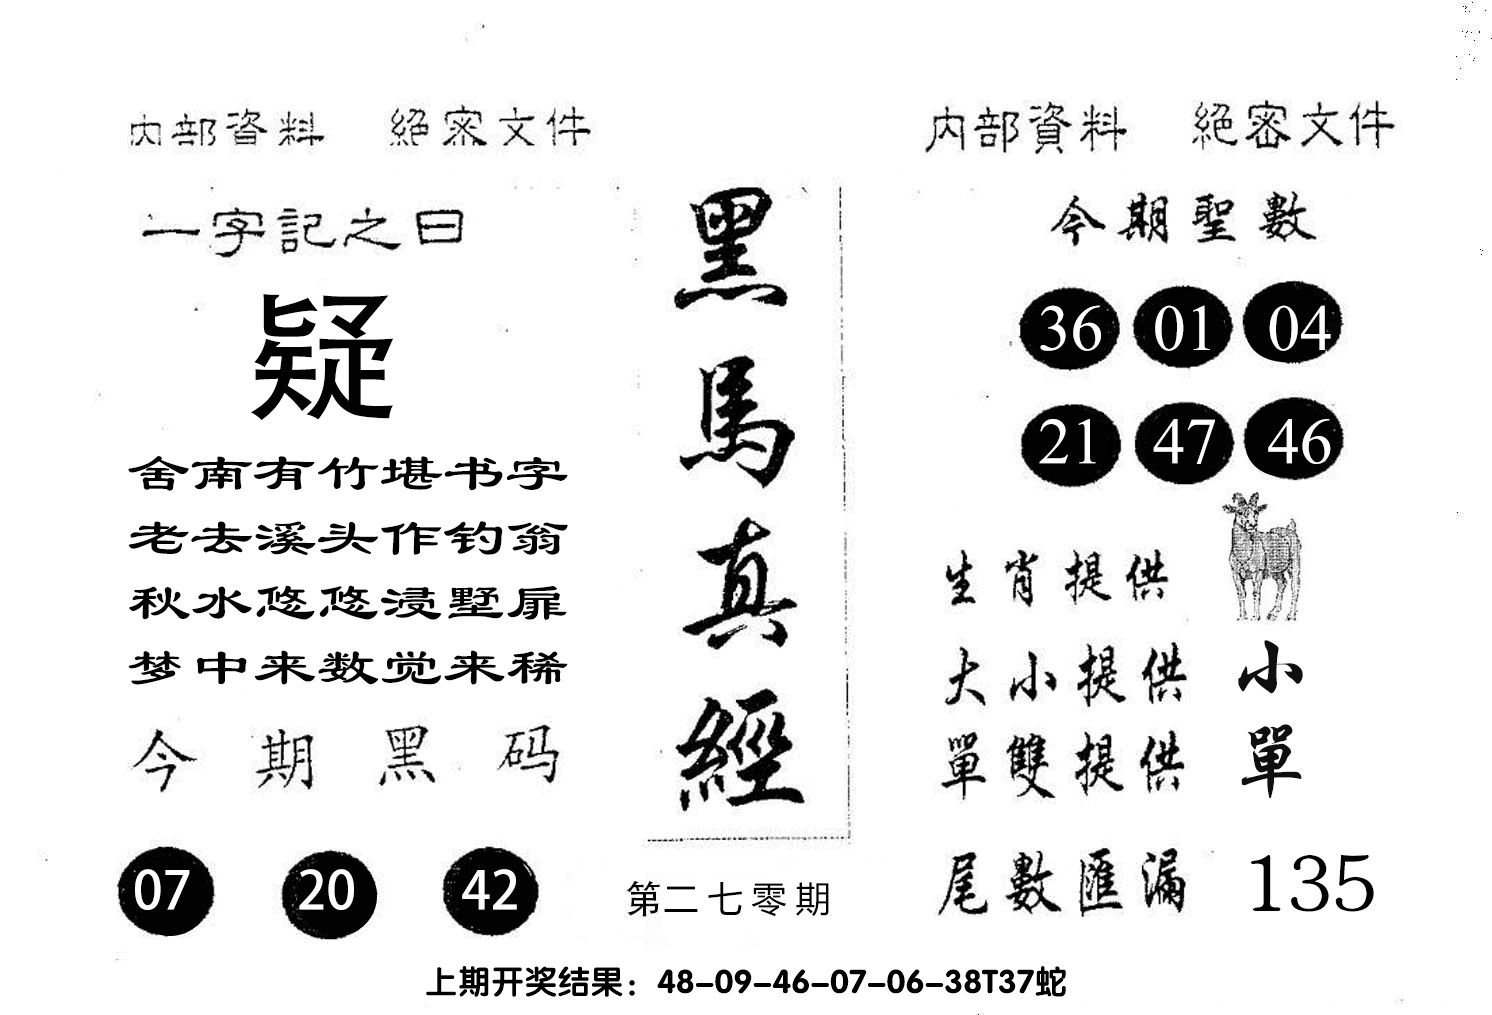 内部資料 絕密文件
一字記之曰
疑
舍南有竹堪书字
老去溪头作钓翁
秋水悠悠浸墅扉
梦中来数觉来稀
今期黑码
07 20 42
黑馬真經
第二七零期
内部資料 絕密文件
今期聖數
36 01 04
21 47 46
生肖提供
大小提供 小
單雙提供 單
尾數匯漏 135
上期开奖结果：48-09-46-07-06-38T37蛇